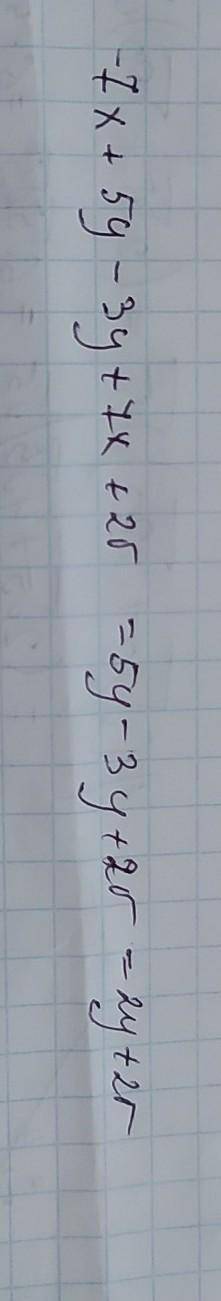 -7x + 5y - 3y + 7x + 2б = 5y - 3y + 2б = 2y + 2б